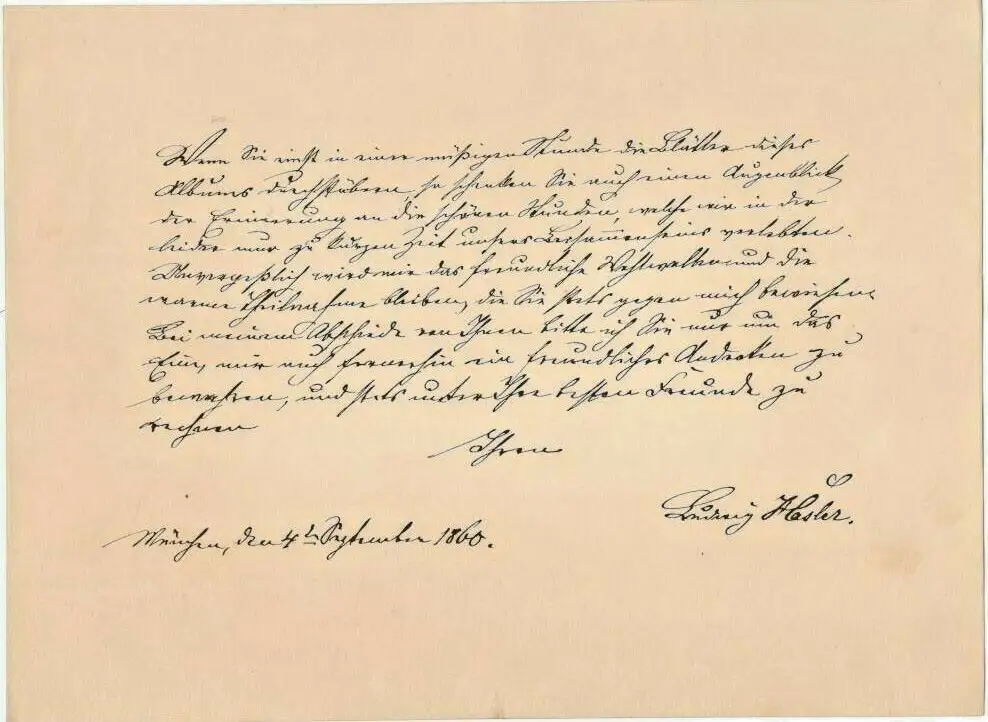 Wenn Sie einst in einer müßigen Stunde die Blätter dieses
Albums durchstöbern, so schenken Sie auch einen Augenblick
der Erinnerung an die schönen Stunden, welche wir in der
leider nur zu kurzen Zeit unsers Beisammenseins verlebten.
Unvergeßlich wird mir das freundliche Wohlwollen und die
warme Theilnahme bleiben, die Sie stets gegen mich bewiesen.
Bei meinem Abschiede von Ihnen bitte ich Sie nur um das
Eine, mir auch fernerhin ein freundliches Andenken zu
bewahren, und stets unter Ihre besten Freunde zu
rechnen
Ihren
Ludwig Häsler.
München, den 4t. September 1860.